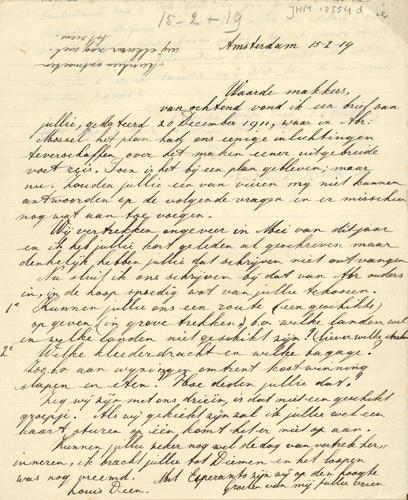 15-2-19
JHM 12554 d
Amsterdam 15-2-19
Waarde makkers,
van ochtend vond ik een brief van
jullie, gedateerd 20 December 1911, waar in Abr.
Mossel het plan had ons eenige inlichtingen
te verschaffen over det maken eener uitgebreide
voet reis. Toen is het bij een plan gebleven; maar
nu. houden jullie een van vieren mij niet kunnen
antwoorden op de volgende vragen en er misschien
nog wat aan toe voegen.
Wij vertrekken ongeveer in Mei van dit jaar
en ik heb jullie kort geleden al geschreven maar
denkelijk hebben jullie dat schrijven niet ontvangen
Nu sluit ik ons schrijven bij dat van Abr ouders
in, in de hoop spoedig wat van jullie te hooren.
1e Kunnen jullie ons een route (een geschikte)
op geven (in grove trekken) b.v. welke landen wel
en welke landen niet geschikt zijn?
2e Welke kleederdracht en welke bagage?
b.v. aan wijzingen omtrent kostwinning
slapen en eten. "Hoe deden jullie dat".
Zeg wij zijn met ons drieën, is dat niet een geschikt
groepje! Als wij gekiekt zijn zal ik jullie wel een
kaart sturen op één, komt het er niet op aan.
Kunnen jullie zeker nog wel de dag van vertrek her-
inneren, ik bracht jullie tot Diemen en het loopen
was nog vreemd. Met Esperanto zijn wij op den hoogte
groeten van mij jullie vriend
Louis Deen.